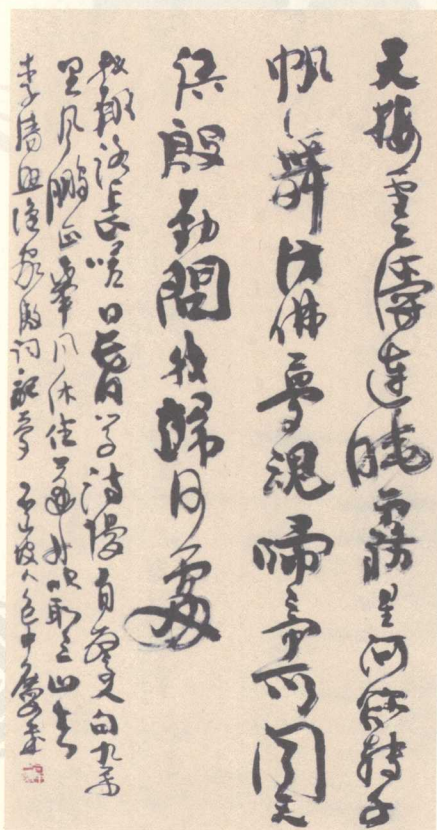 天接雲濤連曉霧星河欲轉千
帆舞仿佛夢魂歸帝所聞天
語殷勤問我歸何處
我報路長嗟日暮學詩謾有驚人句九萬
里風鵬正舉風休住蓬舟吹取三山去
李清照漁家傲詞記夢